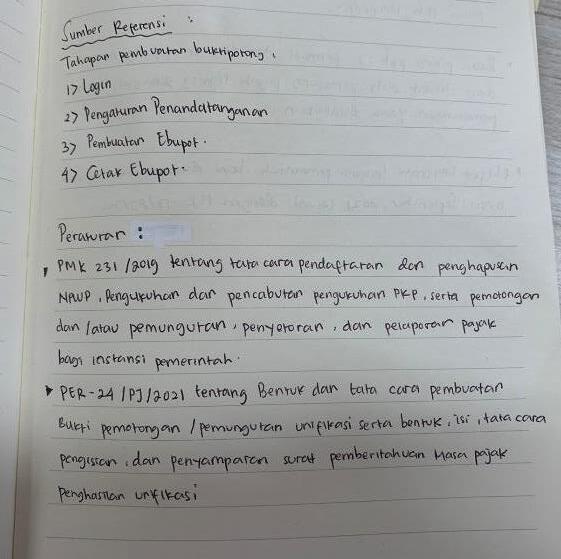 Sumber Referensi :
Tahapan pembuatan buktipotong :
1> Login
2> Pengaturan Penandatanganan
3> Pembuatan Ebupot.
4> Cetak Ebupot.
Peraturan :
PMK 231/2019 tentang tata cara pendaftaran dan penghapusan
NPWP, Pengukuhan dan pencabutan pengukuhan PKP, serta pemotongan
dan /atau pemungutan, penyetoran, dan pelaporan pajak
bagi instansi pemerintah.
PER-24/PJ/2021 tentang Bentuk dan tata cara pembuatan
Bukti pemotongan /pemungutan unifikasi serta bentuk, isi, tata cara
pengisian, dan penyampaian surat pemberitahuan Masa pajak
Penghasilan unifikasi